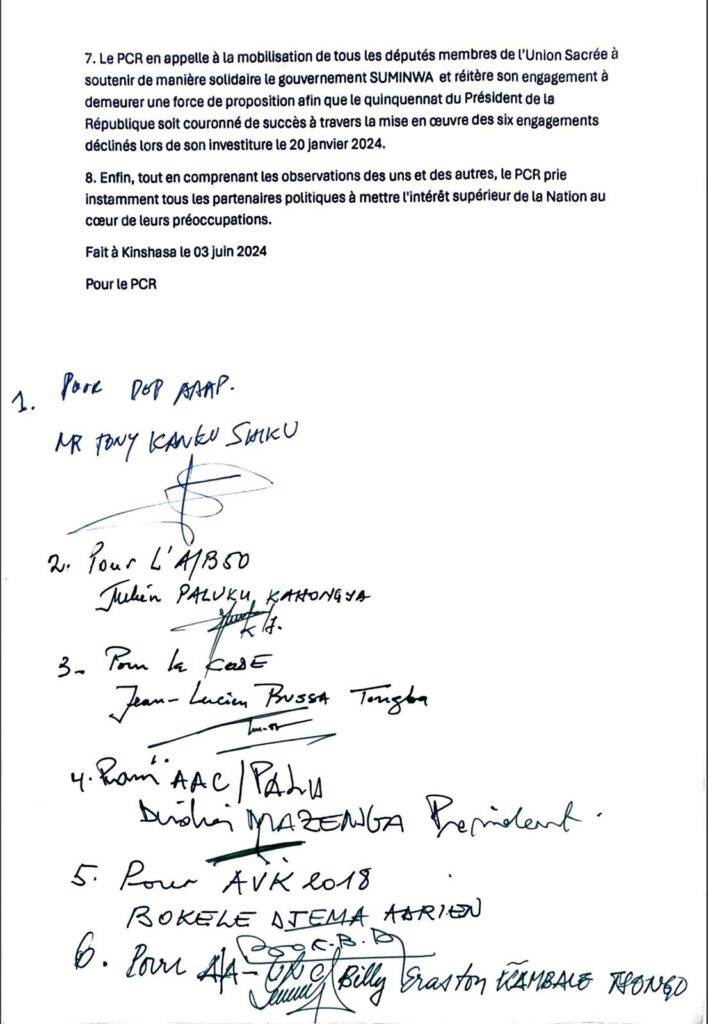 7. Le PCR en appelle à la mobilisation de tous les députés membres de l'Union Sacrée à
soutenir de manière solidaire le gouvernement SUMINWA et réitère son engagement à
demeurer une force de proposition afin que le quinquennat du Président de la
République soit couronné de succès à travers la mise en œuvre des six engagements
déclinés lors de son investiture le 20 janvier 2024.
8. Enfin, tout en comprenant les observations des uns et des autres, le PCR prie
instamment tous les partenaires politiques à mettre l'intérêt supérieur de la Nation au
cœur de leurs préoccupations.
Fait à Kinshasa le 03 juin 2024
Pour le PCR
1. Pour DOP AAAP.
MR TONY KANKU SHIKU
2. Pour L'A/B50
Julien PALUKU KAHONGYA
3- Pour la CODE
Jean-Lucien BUSSA Tongba
4. Pour AAC/PALU
MAZENGA President.
5. Pour AVK 2018
BOKELE DJEMA ADRIEN
6. Pour A/A-UNC Billy Eraston KAMBALE TSONGO